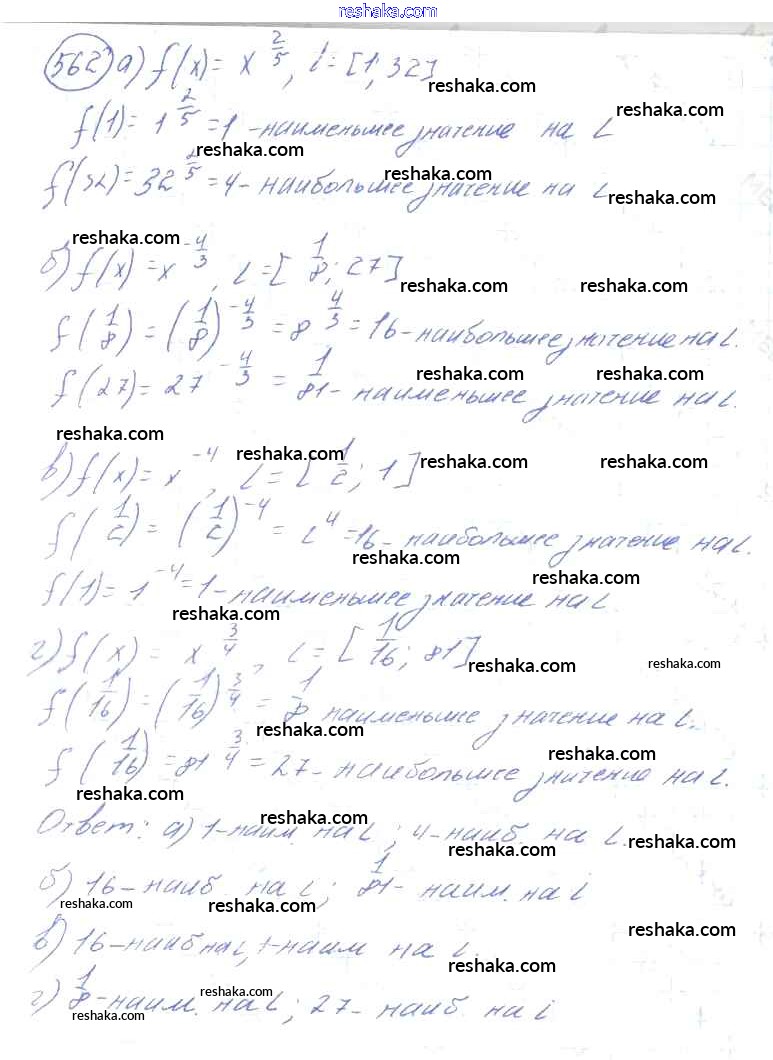 reshaka.com
562 а) f(x) = x^(2/5), L = [1; 32]
reshaka.com
reshaka.com
f(1) = 1^(2/5) = 1 - наименьшее значение на L
reshaka.com
f(32) = 32^(2/5) = 4 - наибольшее значение на L
reshaka.com
reshaka.com
reshaka.com
б) f(x) = x^(-4/3), L = [1/8; 27]
reshaka.com
reshaka.com
f(1/8) = (1/8)^(-4/3) = 8^(4/3) = 16 - наибольшее значение на L.
reshaka.com
reshaka.com
f(27) = 27^(-4/3) = 1/81 - наименьшее значение на L.
reshaka.com
в) f(x) = x^(-4), L = [1/2; 1]
reshaka.com
reshaka.com
f(1/2) = (1/2)^(-4) = 2^4 = 16 - наибольшее значение на L.
reshaka.com
reshaka.com
f(1) = 1^(-4) = 1 - наименьшее значение на L
reshaka.com
г) f(x) = x^(3/4), L = [1/16; 81]
reshaka.com
reshaka.com
f(1/16) = (1/16)^(3/4) = 1/8 наименьше значение на L.
reshaka.com
reshaka.com
f(1/16) = 81^(3/4) = 27 - наибольшее значение на L.
reshaka.com
reshaka.com
Ответ: а) 1 - наим. на L; 4 - наиб. на L.
reshaka.com
reshaka.com
б) 16 - наиб на L; 1/81 - наим. на L
reshaka.com
reshaka.com
reshaka.com
в) 16 - наиб на L, 1 - наим на L.
reshaka.com
reshaka.com
г) 1/8 - наим. на L; 27 - наиб на L
reshaka.com
reshaka.com